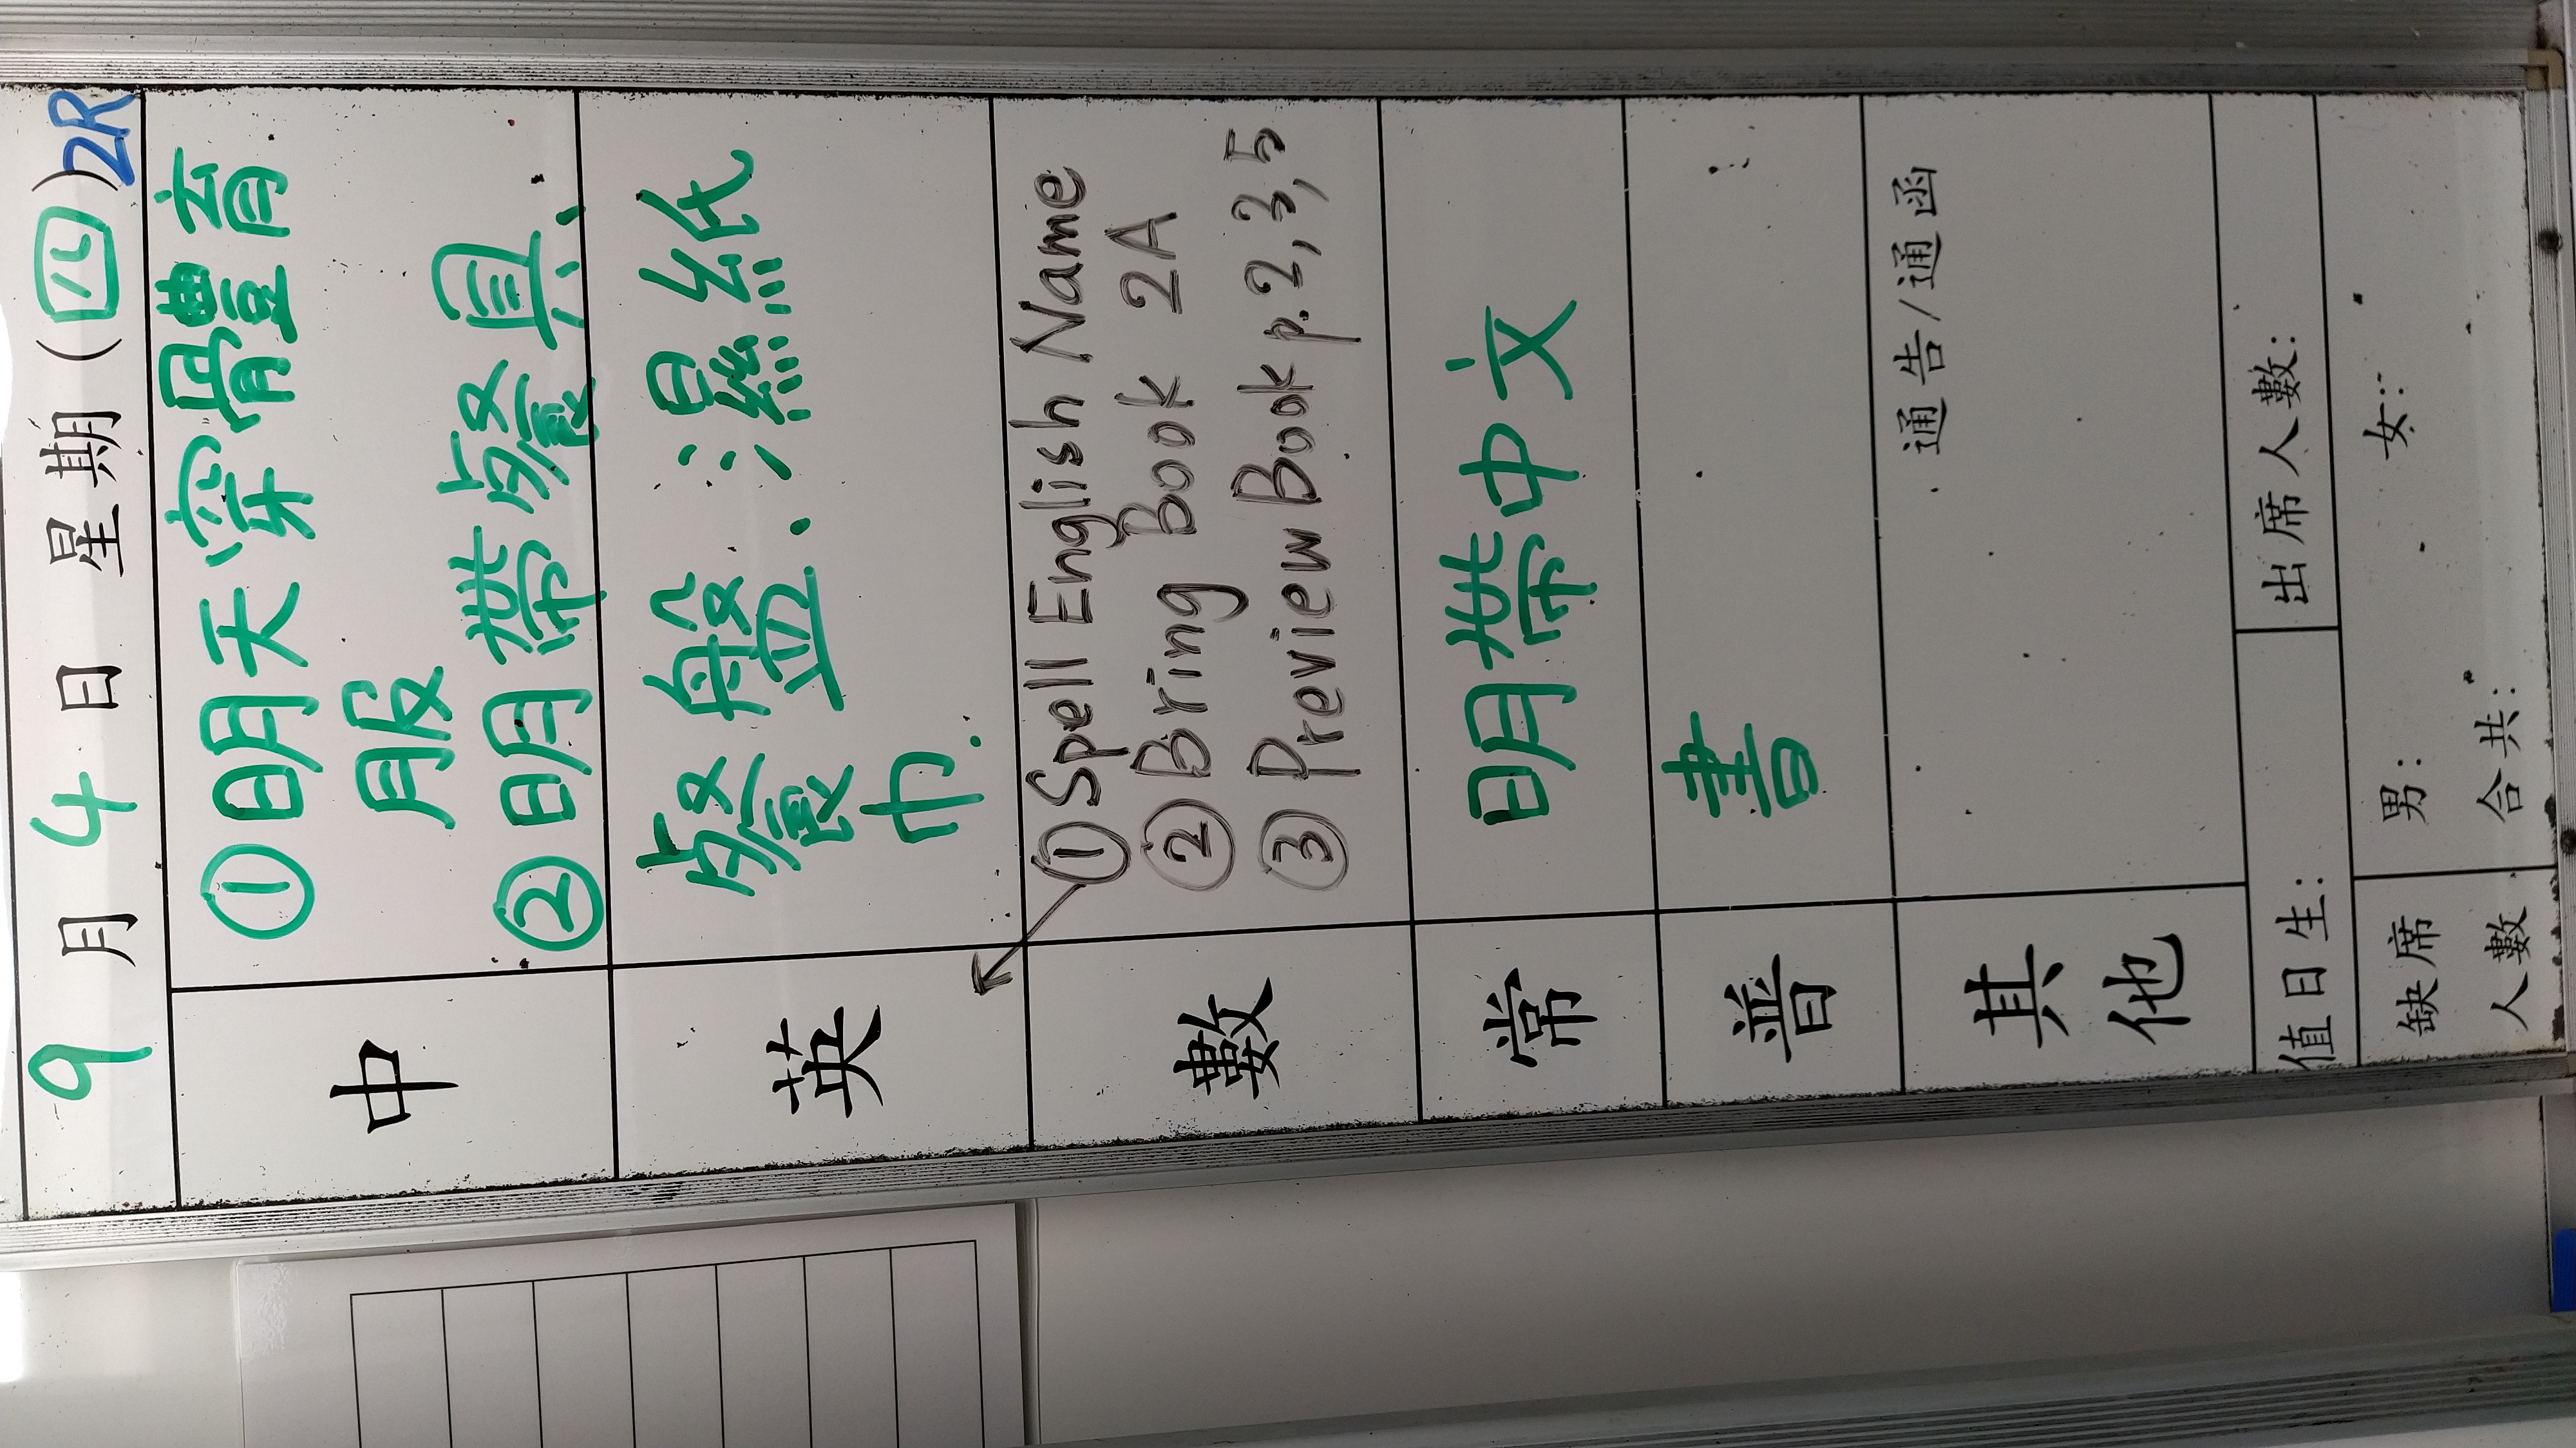 9月4日 星期(四) 2R
中
①明天穿體育
服
②明帶餐具、
英
餐盤、濕紙
巾.
數
①Spell English Name
②Bring Book 2A
③Preview Book p.2,3,5
常
明帶中文
普
書
其他
通告/通函
值日生:
出席人數:
缺席人數
男:
女:
合共: